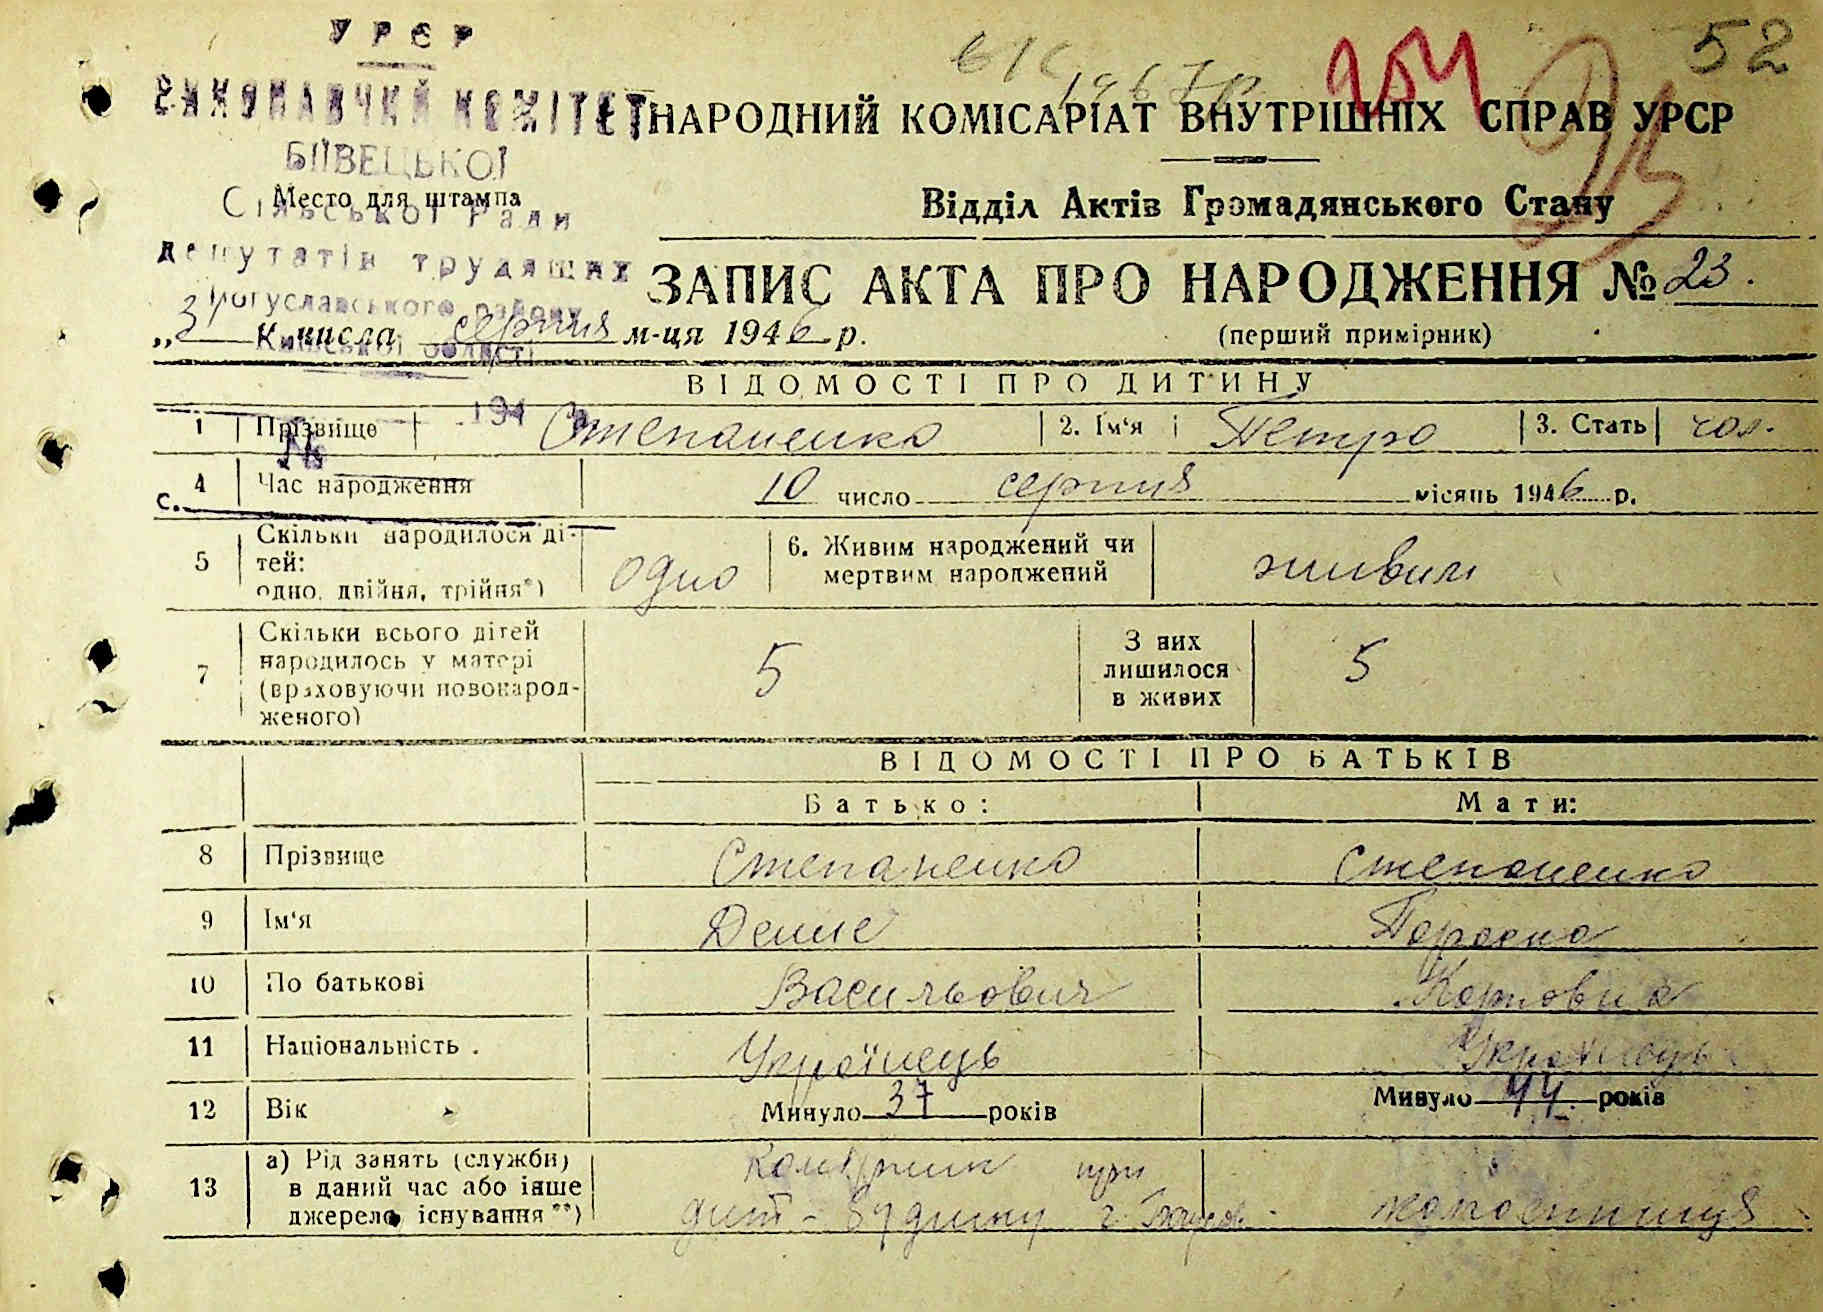 УРСР
ВИКОНАВЧИЙ КОМІТЕТ
БІЇВЕЦЬКОЇ
Сільської Ради
депутатів трудящих
Богуславського району
Київської області
194
№
Место для штампа
52
НАРОДНИЙ КОМІСАРІАТ ВНУТРІШНІХ СПРАВ УРСР
Відділ Актів Громадянського Стану
ЗАПИС АКТА ПРО НАРОДЖЕННЯ № 23.
„3 числа серпня м-ця 1946 р.
(перший примірник)
ВІДОМОСТІ ПРО ДИТИНУ
1 Прізвище Степаненко 2. Ім'я Петро 3. Стать чол.
4 Час народження 10 число серпня місяць 1946 р.
с.
5 Скільки народилося дітей: одно, двійня, трійня*) одно 6. Живим народжений чи мертвим народжений живим
7 Скільки всього дітей народилось у матері (враховуючи новонародженого) 5 З них лишилося в живих 5
ВІДОМОСТІ ПРО БАТЬКІВ
Батько: Мати:
8 Прізвище Степаненко Степаненко
9 Ім'я Денис Параска
10 По батькові Васильович Карповна
11 Національність. Українець Українець
12 Вік Минуло 37 років Минуло 44 років
13 а) Рід занять (служби) в даний час або інше джерело існування**) при дит-будинку колгоспниця